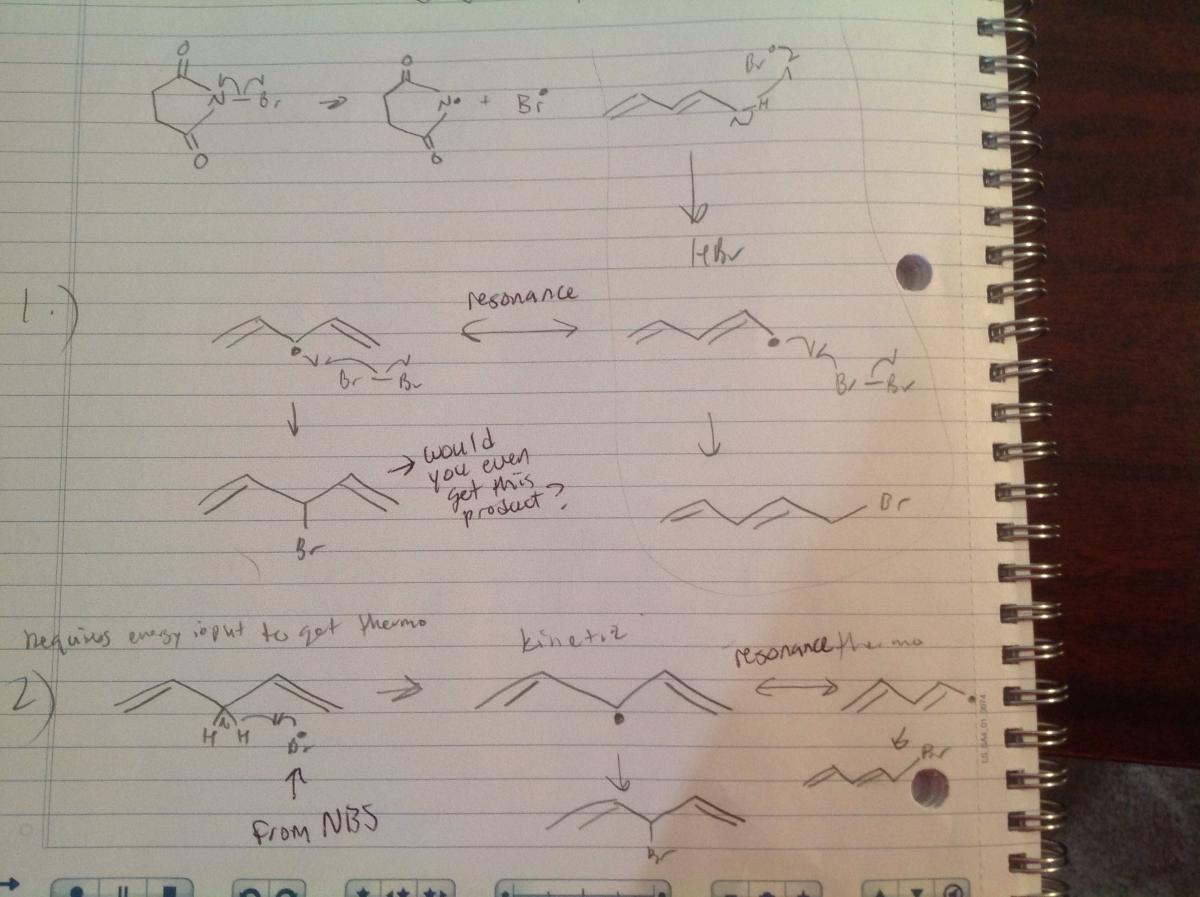 O
N - Br
O
O
N• + Br•
O
Br•
H
HBr
1.)
resonance
Br - Br
Br - Br
would
you even
get this
product?
Br
Br
Requires energy input to get thermo
kinetic
resonance thermo
2)
H H
Br•
Br
From NBS
Br